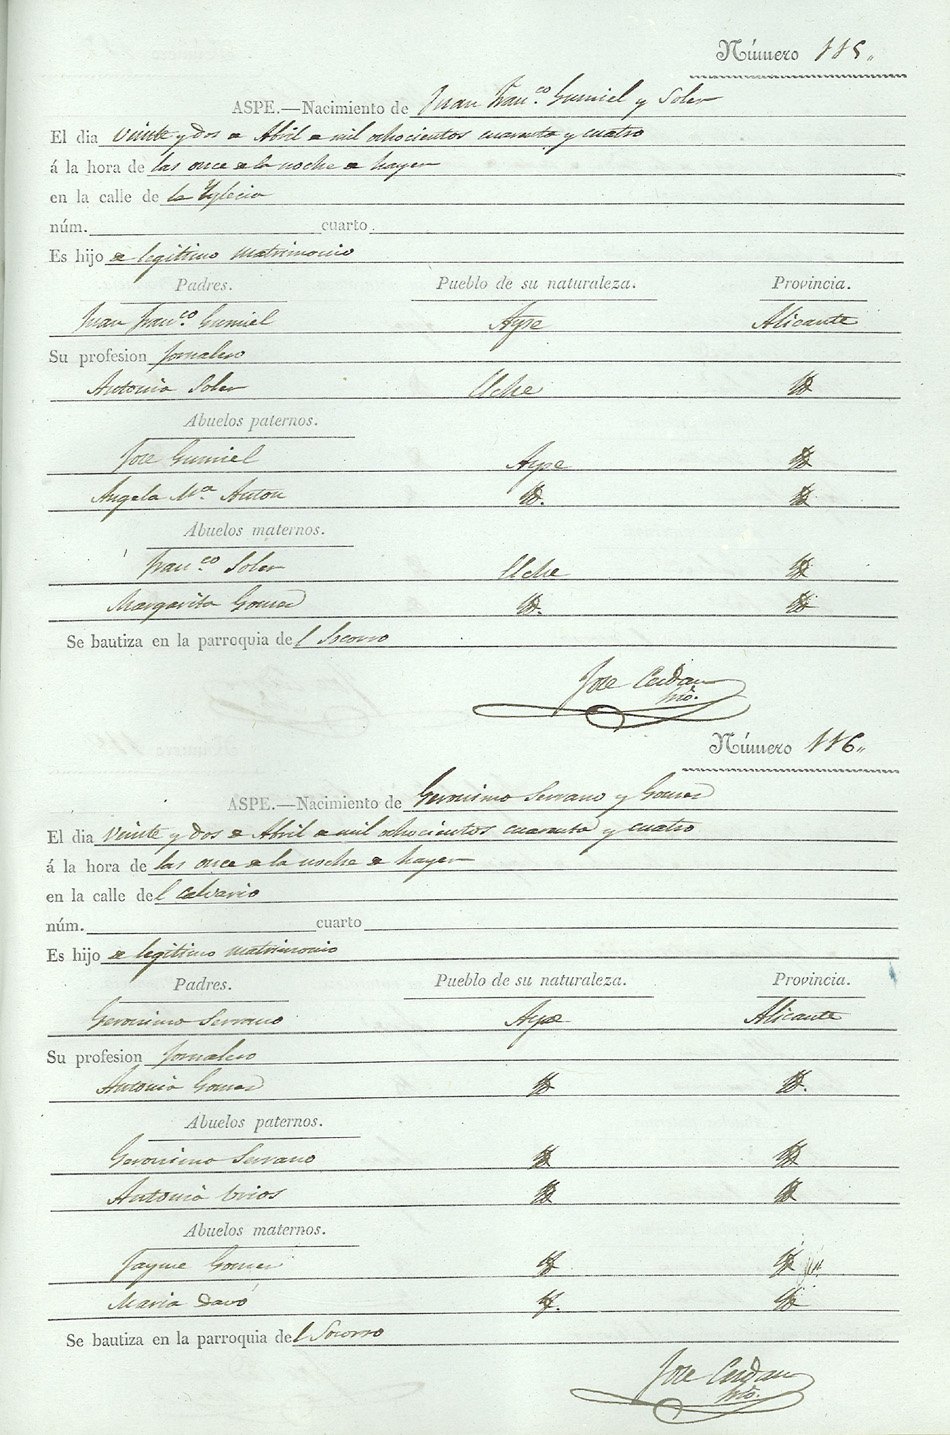 Número 115.
ASPE.—Nacimiento de Juan Fran.co Gumiel y Soler
El dia vinte y dos de Abril de mil ochocientos cuarenta y cuatro
á la hora de las once de la noche de hayer
en la calle de la Yglecia
núm. cuarto
Es hijo de legitimo matrimonio
Padres. Pueblo de su naturaleza. Provincia.
Juan Fran.co Gumiel Aspe Alicante
Su profesion Jornalero
Antonia Soler Elche Yd
Abuelos paternos.
Jose Gumiel Aspe Yd
Angela M.a Anton Yd. Yd
Abuelos maternos.
Fran.co Soler Elche Yd
Margarita Gomez Yd. Yd
Se bautiza en la parroquia del Socorro
Jose Cerdan
Número 116.
ASPE.—Nacimiento de Geronimo Serrano y Gomez
El dia vinte y dos de Abril de mil ochocientos cuarenta y cuatro
á la hora de las once de la noche de hayer
en la calle del Calvario
núm. cuarto
Es hijo de legitimo matrimonio
Padres. Pueblo de su naturaleza. Provincia.
Geronimo Serrano Aspe Alicante
Su profesion Jornalero
Antonia Gomez Yd Yd.
Abuelos paternos.
Geronimo Serrano Yd Yd
Antonia Yd Yd
Abuelos maternos.
Jayme Gomez Yd Yd
Maria Davó Yd. Yd
Se bautiza en la parroquia del Socorro
Jose Cerdan